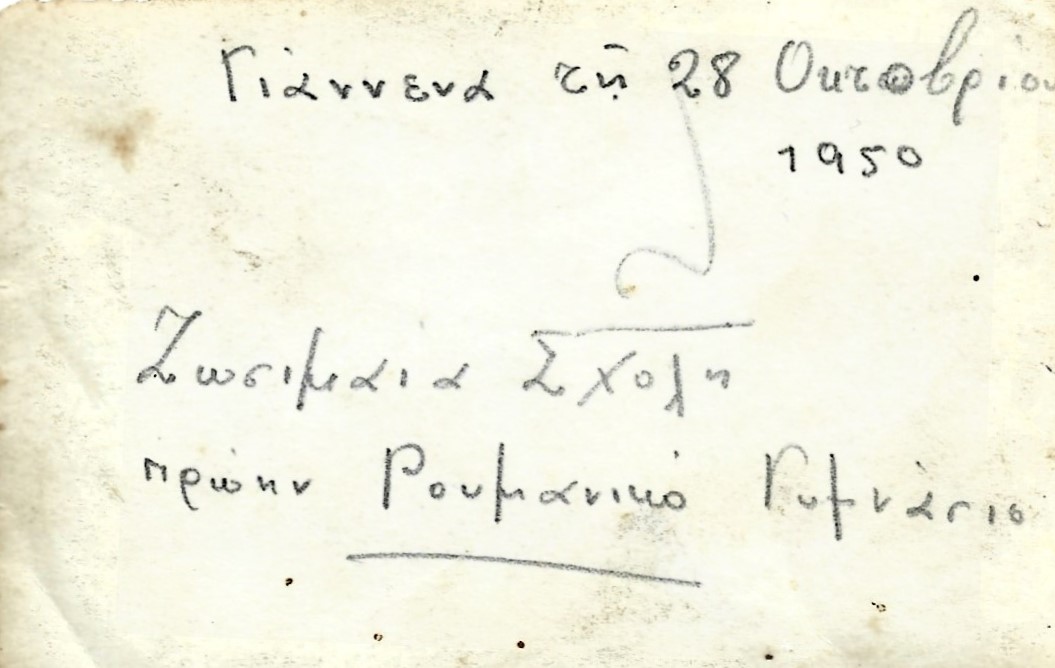 Γιάννενα τῇ 28 Οκτωβρίου
1950
Ζωσιμαία Σχολη
πρώην Ρουμανικό Γυμνάσιο